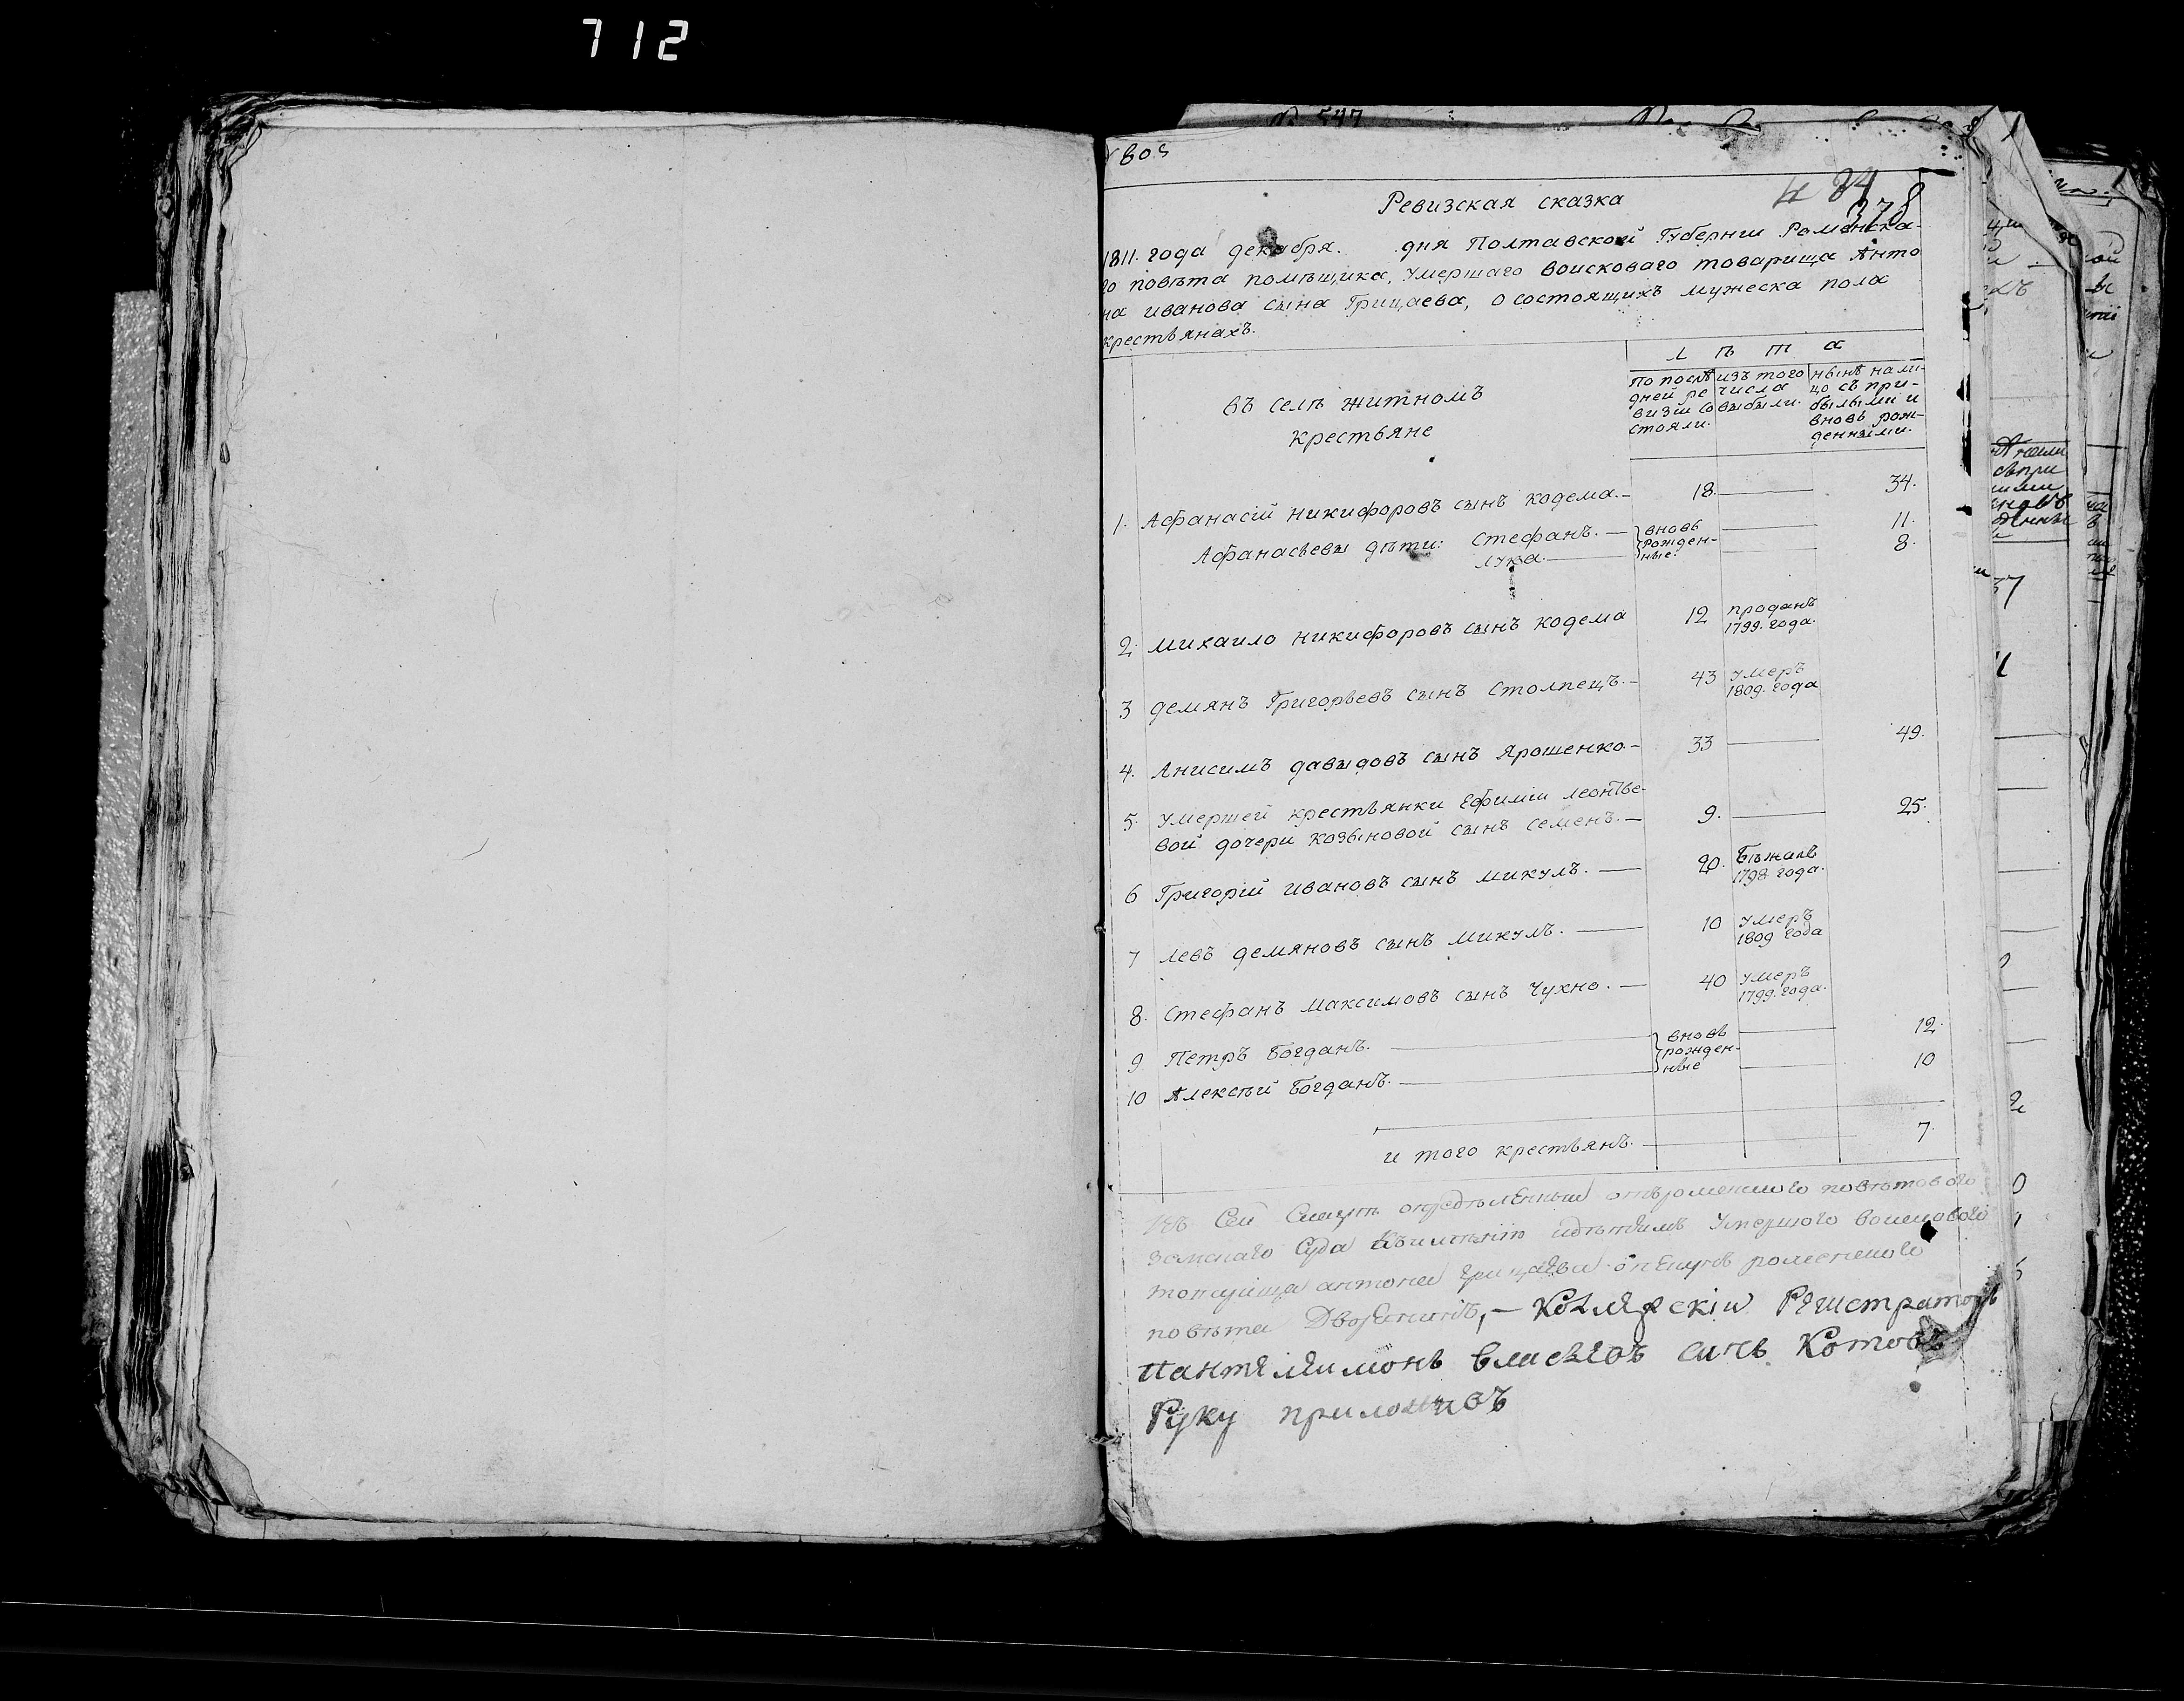 712
Ревизская сказка
484
378
1811. года декабря. дня Полтавской Губернии Роменска-
го повѣта помѣщика, умершаго воисковаго товарища Анто
на иванова сына Грицаева, о состоящихъ мужеска пола
крестьянахъ.
въ селѣ житномъ
крестьяне
лѣта
по послѣдней ревизии состояли.
изъ того числа выбыли.
нынѣ налицо съ прибылыми и вновь рожденными.
1. Афанасiй никифоровъ сынъ кодема.- 18. 34.
Афанасьевы дѣти: Стефанъ. вновь рожденные 11.
лука. 8.
2. михаило никифоровъ сынъ кодема 12 проданъ 1799. года.
3 демянъ Григорьевъ сынъ Столпецъ.- 43 умеръ 1809. года
4. Анисимъ давыдовъ сынъ Ярошенко.- 33 49.
5. умершей крестьянки Ефимiи леонтье-
вой дочери козыновой сынъ семенъ.- 9. 25.
6 Григорiй ивановъ сынъ микулъ. 20. Бѣжалъ 1798 года.
7 левъ демяновъ сынъ микулъ. 10 умеръ 1809 года
8. Стефанъ максимовъ сынъ Чухно. 40 умеръ 1799. года.
9 Петръ Богданъ. вновь рожденные 12.
10 Алексѣй Богданъ. 10
и того крестьянъ. 7.
Къ Сей Сказкѣ опредѣленный отъ роменского повѣтового
земскаго Суда умершого воискового
товарища антона грицаева опекунъ роменского
повѣта Дворянинъ,- Колляжскiи Регистраторъ
Пантялимонъ власьевъ синъ Котовъ
Руку приложилъ